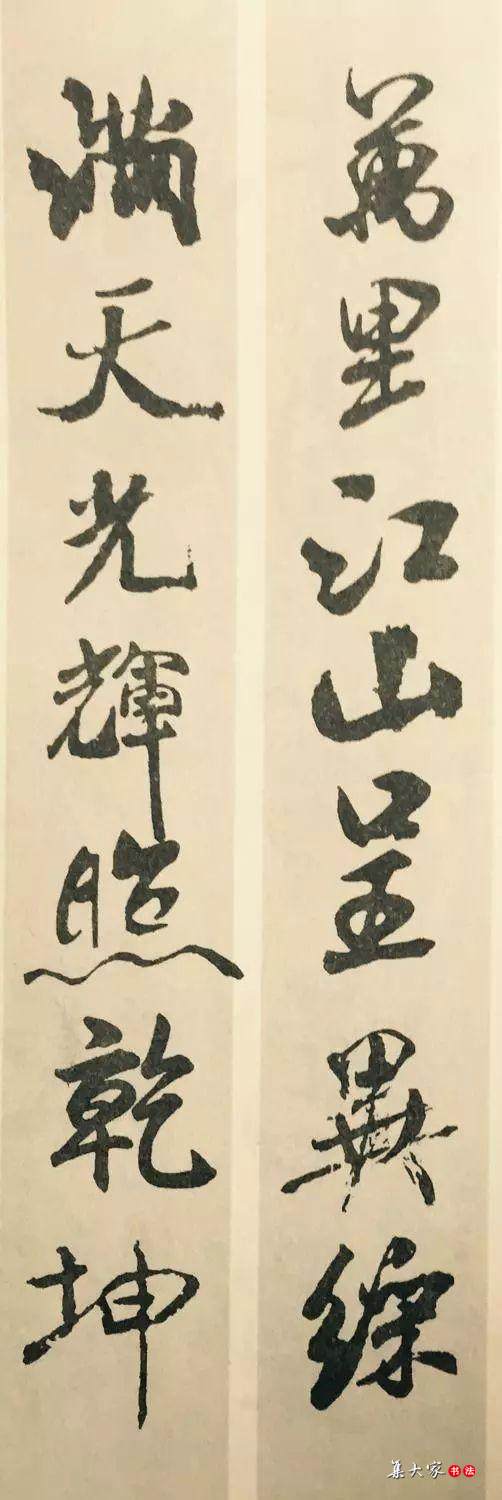 萬里江山呈異綵
滿天光輝照乾坤
集大家書法